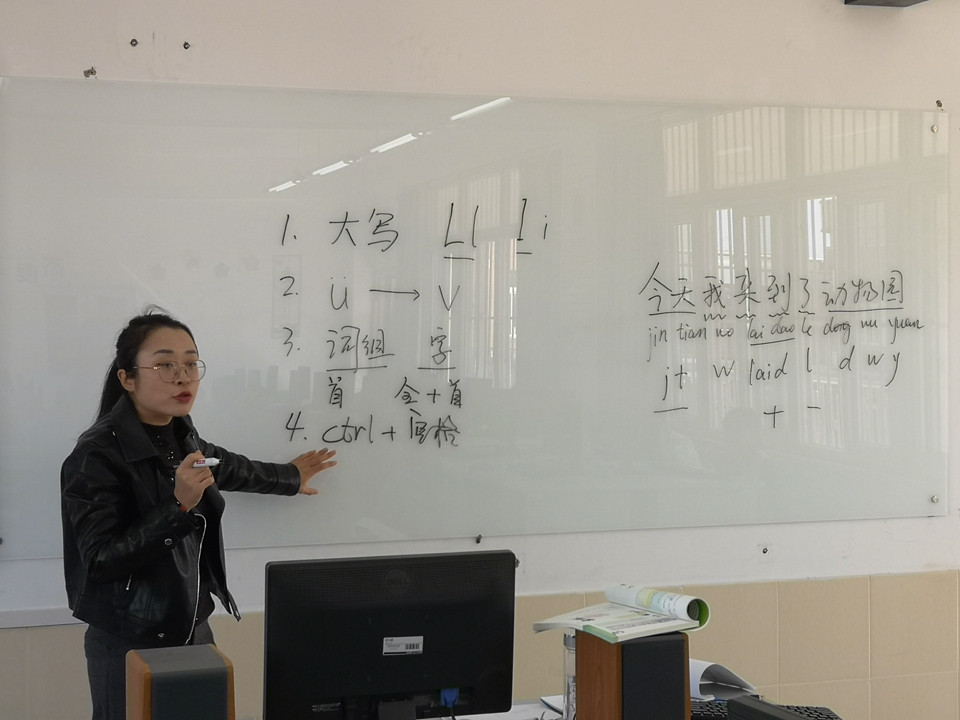 1. 大写 Ll Ii
2. ü → v
3. 词组 字
首 全+首
4. ctrl+空格
今天我来到了动物园
jin tian wo lai dao le dong wu yuan
jt w laid l d w y
+ -
DELL